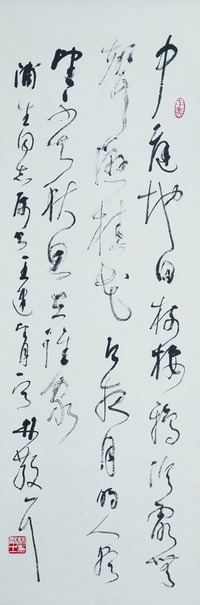 中庭地白树栖鸦冷露无
声湿桂花今夜月明人尽
望不知秋思在谁家
蒲生同志属书王建诗一首林散之